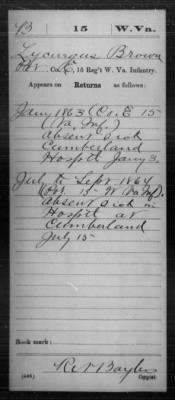 B 15 W.Va.
Lycurgus Brown
Pvt., Co. E, 15 Reg't W. Va. Infantry.
Appears on Returns as follows:
Jany 1863 (Co. E 15
Va. Inf.)
Absent Sick
Cumberland
Hospitl Jany 3.
July to Sept 1864
(Co. 15 W Va Inf).
Absent sick in
Hospitl at
Cumberland
July 15
Book mark:
(546) Copyist.